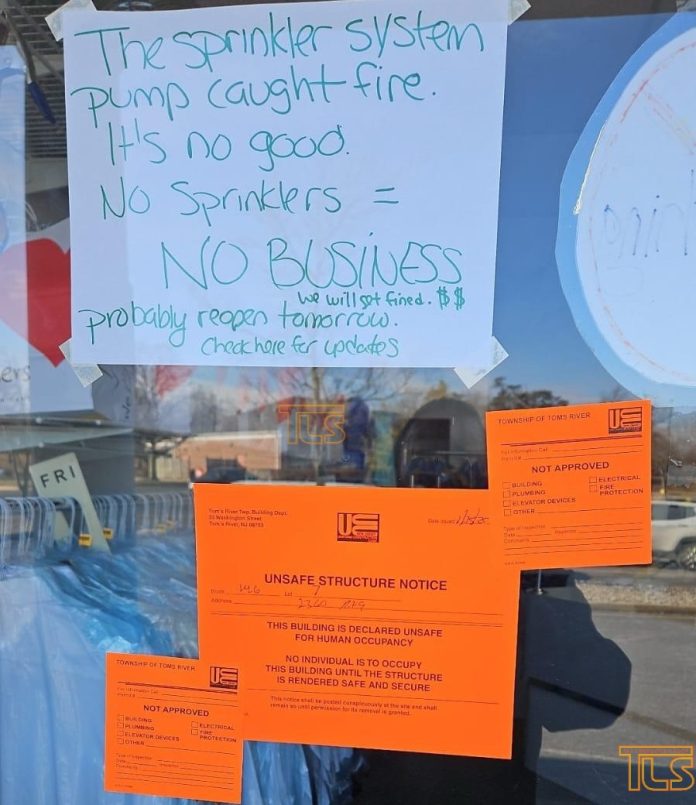 The sprinkler system
pump caught fire.
It's no good.
No Sprinklers =
NO BUSINESS
we will get fined. $ $
probably reopen tomorrow.
check here for updates
ers
onin
FRI
TLS
TOWNSHIP OF TOMS RIVER
For Information Call
Permit #
NOT APPROVED
BUILDING
PLUMBING
ELEVATOR DEVICES
OTHER
ELECTRICAL
FIRE
PROTECTION
Type of Inspection
Date
Inspector
Comments
Tom's River Twp. Building Dept.
33 Washington Street
Tom's River, NJ 08753
Date Issued
UNSAFE STRUCTURE NOTICE
Block 146 Lot
Address 2360 Rt 9
THIS BUILDING IS DECLARED UNSAFE
FOR HUMAN OCCUPANCY
NO INDIVIDUAL IS TO OCCUPY
THIS BUILDING UNTIL THE STRUCTURE
IS RENDERED SAFE AND SECURE
This notice shall be posted conspicuously at the site and shall
remain so until permission for its removal is granted.
TOWNSHIP OF TOMS RIVER
For Information Call
Permit #
NOT APPROVED
BUILDING
PLUMBING
ELEVATOR DEVICES
OTHER
ELECTRICAL
FIRE
PROTECTION
Type of Inspection
Date
Inspector
Comments
TLS